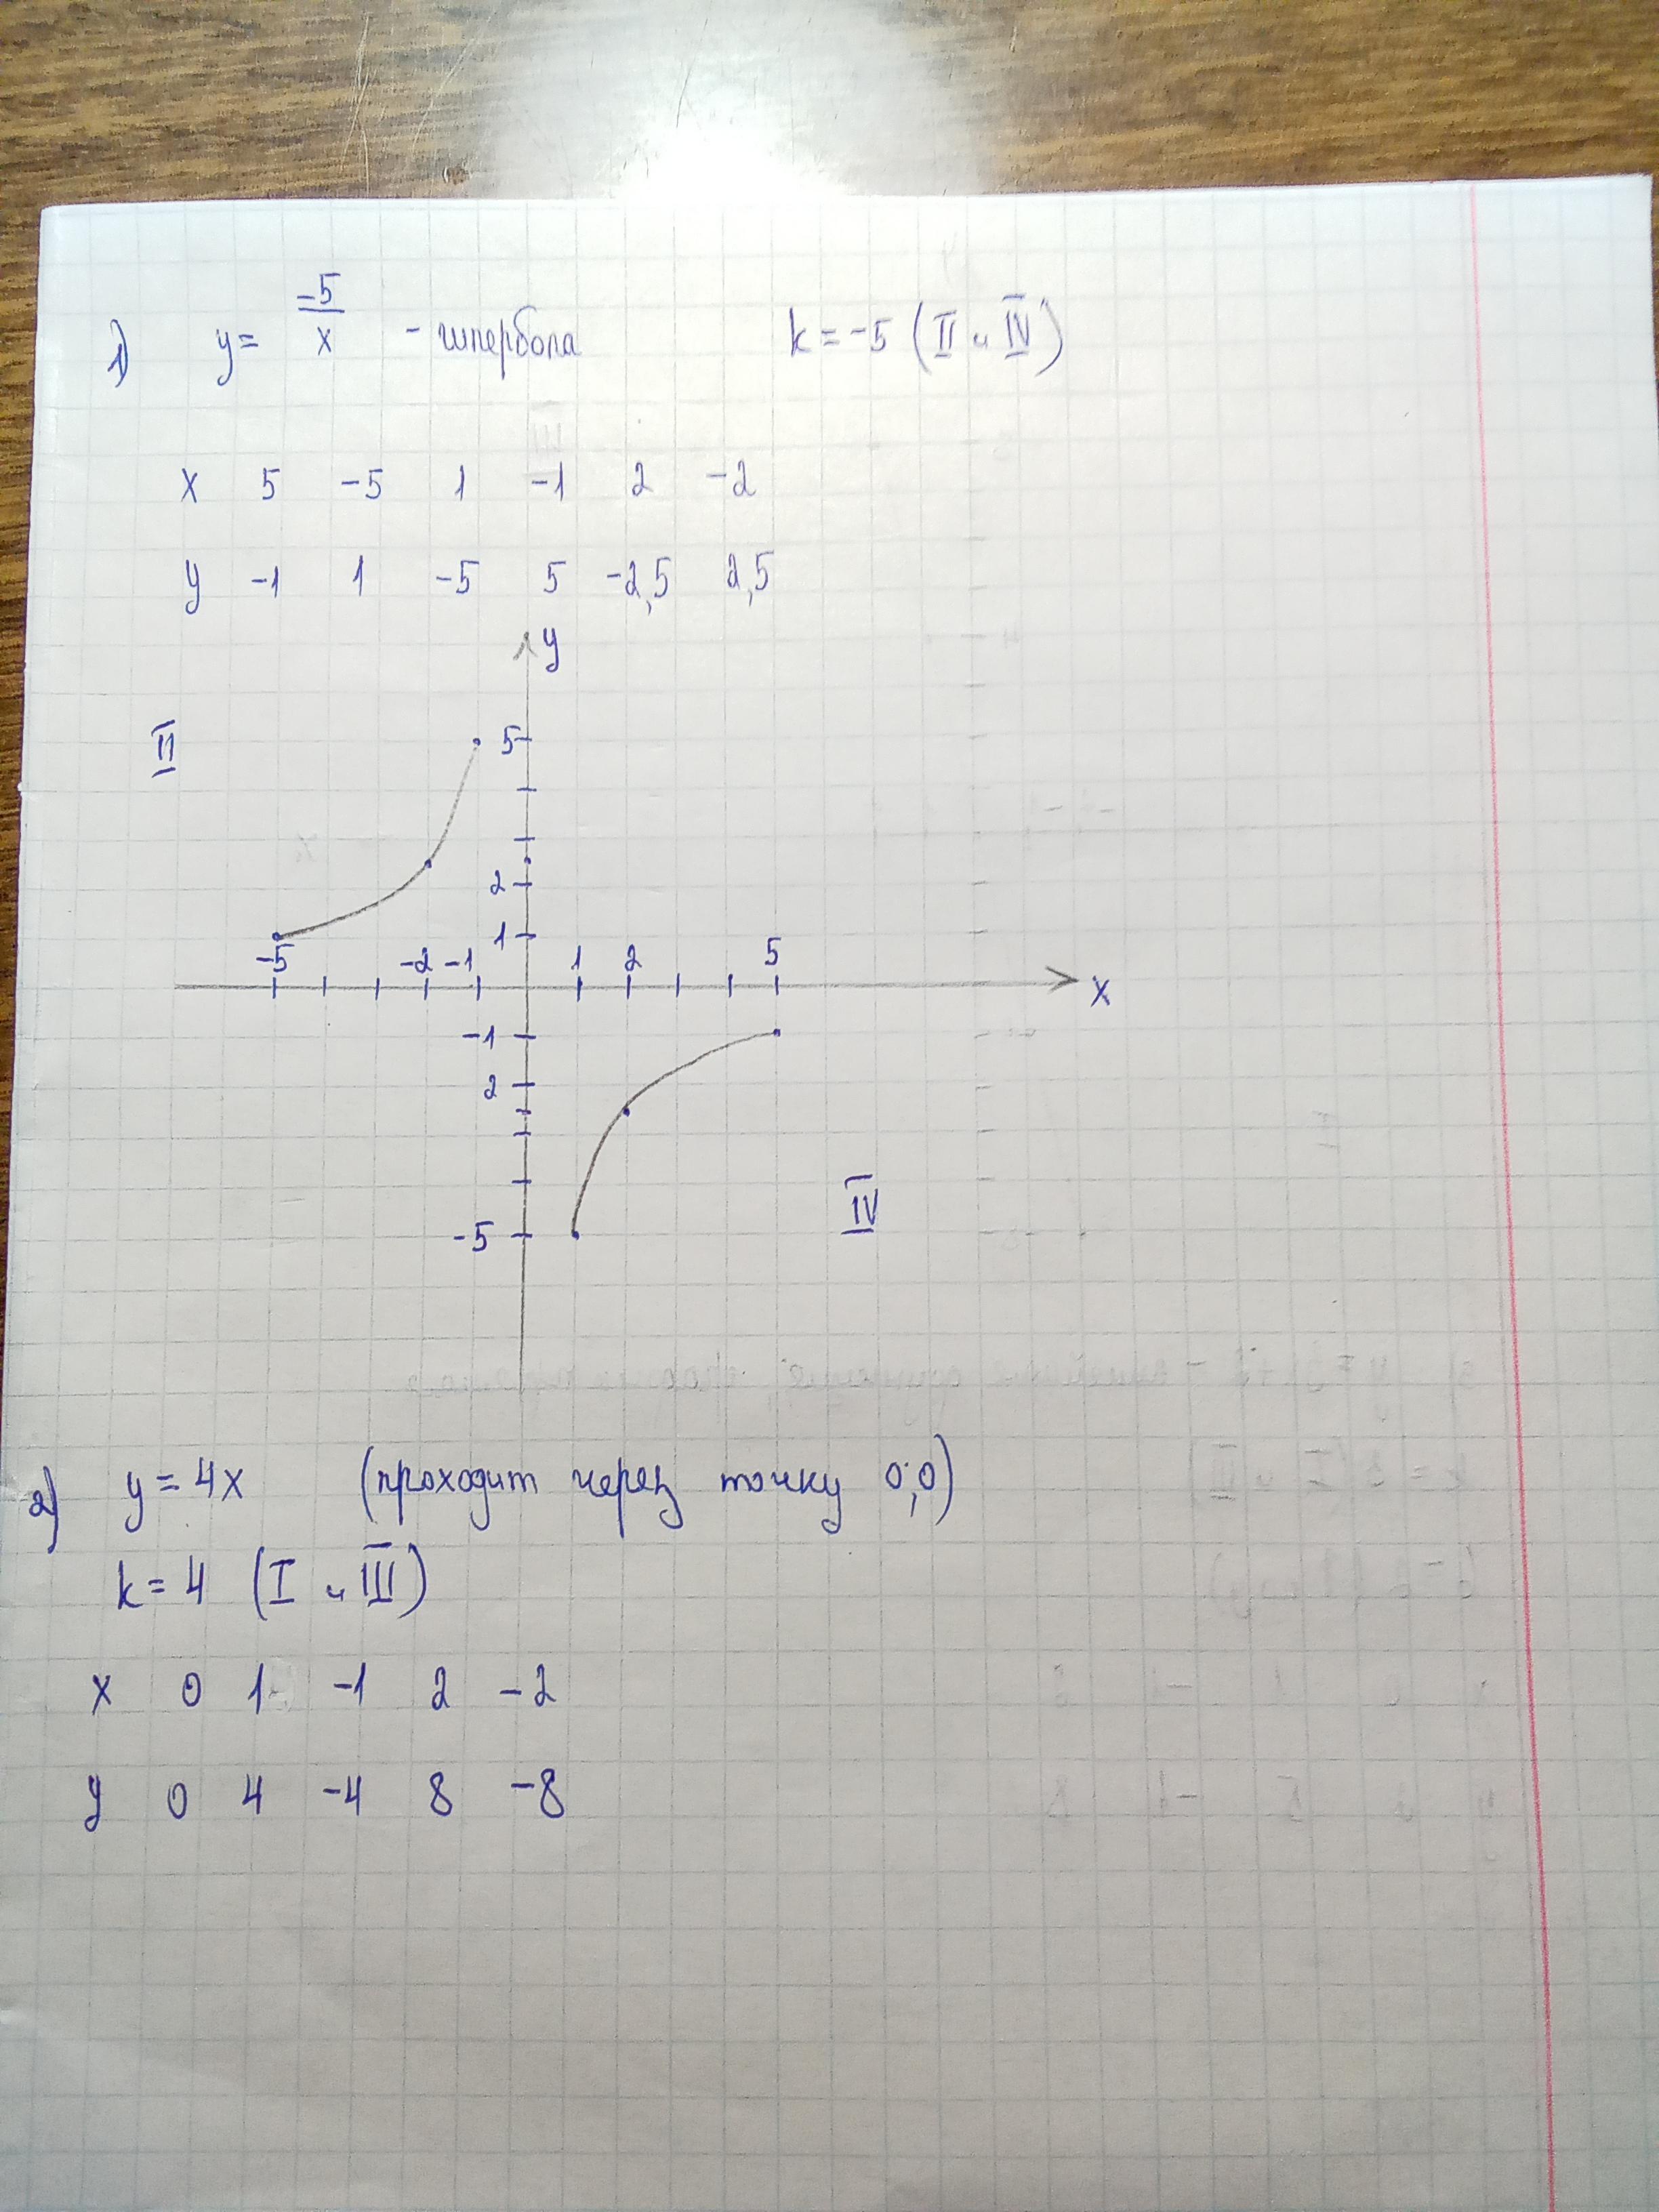 1) y = -5/x - гипербола k = -5 (II и IV)
x 5 -5 1 -1 2 -2
y -1 1 -5 5 -2,5 2,5
y
II
5
2
1
-5 -2 -1 1 2 5
x
-1
2
IV
-5
2) y = 4x (проходит через точку 0;0)
k = 4 (I и III)
x 0 1 -1 2 -2
y 0 4 -4 8 -8